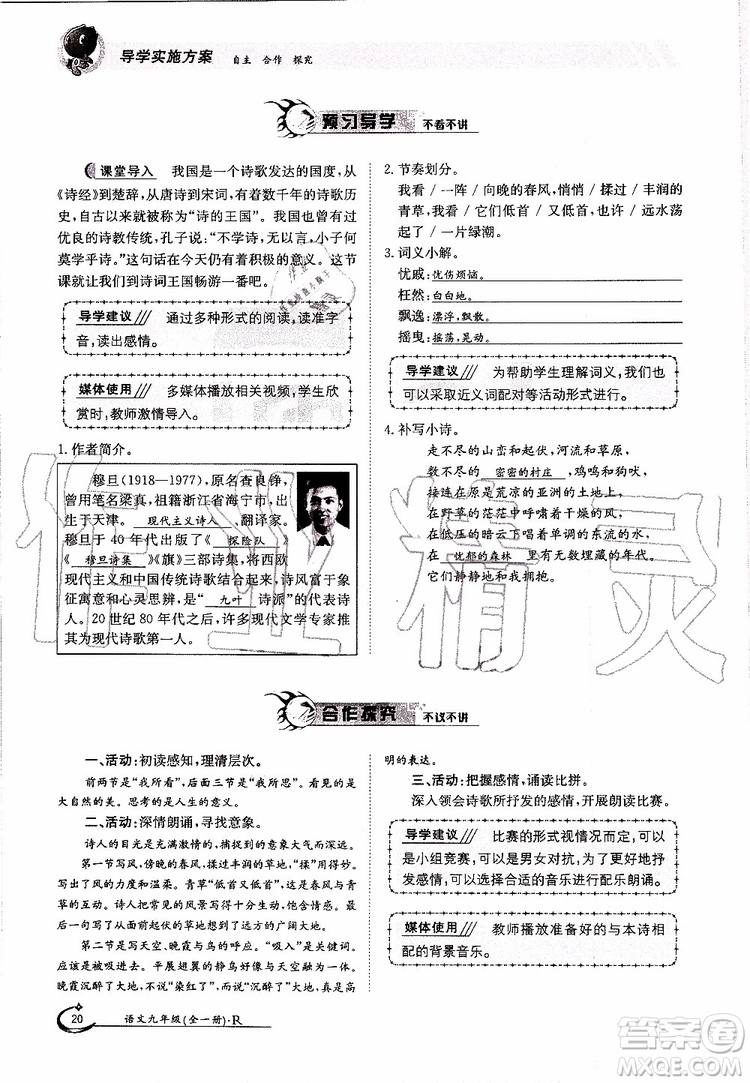 导学实施方案 自主 合作 探究
预习导学 不看不讲
课堂导入 我国是一个诗歌发达的国度,从
《诗经》到楚辞,从唐诗到宋词,有着数千年的诗歌历
史,自古以来就被称为“诗的王国”。我国也有过
优良的诗教传统,孔子说:“不学诗,无以言,小子何
莫学乎诗。”这句话在今天仍有积极的意义。这节
课就让我们到诗词王国畅游一番吧。
导学建议 通过多种形式的阅读,读准字
音,读出感情。
媒体使用 多媒体播放相关视频,学生欣
赏时,教师激情导入。
1. 作者简介。
穆旦(1918—1977),原名查良铮,
曾用笔名梁真,祖籍浙江省海宁市,出
生于天津。现代主义诗人、翻译家。
穆旦于 40 年代出版了《探险队》
《穆旦诗集》《旗》三部诗集,将西欧
现代主义和中国传统诗歌结合起来,诗风富于象
征寓意和心灵思辨,是“九叶诗派”的代表诗
人。20 世纪 80 年代之后,许多现代文学专家推其
为现代诗歌第一人。
2. 节奏划分。
我看 / 一阵 / 向晚的春风,悄悄 / 揉过 / 丰润的
青草,我看 / 它们低首 / 又低首,也许 / 远水荡
起了 / 一片绿潮。
3. 词义小解。
忧戚:忧伤烦恼。
枉然:白白地。
飘逸:漂浮,飘散。
摇曳:摇荡,晃动。
导学建议 为帮助学生理解词义,我们也
可以采取近义词配对等活动形式进行。
4. 补写小诗。
走不尽的山峦和起伏,河流和草原,
数不尽的 密密的村庄 ,鸡鸣和狗吠,
接连在原是荒凉的亚洲的土地上,
在野草的茫茫中呼啸着干燥的风,
在低压的暗云下唱着单调的东流的水,
在 忧郁的森林 里有无数埋藏的年代。
它们静静地和我拥抱。
合作探究 不议不讲
一、活动:初读感知,理清层次。
前两节是“我所看”,后面三节是“我所思”。我看到的是
大自然的美。思考的是人生的意义。
二、活动:深情朗诵,寻找意象。
诗人的目光是充满激情的,捕捉到的意象大气而深远。
第一节写风,傍晚的春风,揉过丰润的草地,“揉”用得妙。
写出了风的力度和温柔。青草“低首又低首”,是春风与青草
的互动。诗人从面前起伏的草地看出了盎然的春意。最后
一句写到了从面前起伏的草地到远方的广阔大地。
第二节是写天空、晚霞与鸟的呼应。“吸入”是关键词。
应该是被晴空迷醉。平展翅翼的静鸟好像与天空融为一体。
晚霞沉醉了大地,不说“染红了”而说“沉醉了大地”,真是高
明的表达。
三、活动:把握感情,诵读比拼。
深入领会诗歌所抒发的感情,开展朗读比赛。
导学建议 比赛的形式视情况而定,可以
是小组竞赛,可以是男女对抗,为了更好地抒
发感情,可以选择合适的音乐进行配乐朗诵。
媒体使用 教师播放准备好的与本诗相
配的背景音乐。
20 语文九年级(全一册)·R
作业精灵
答案圈
MXQE.COM